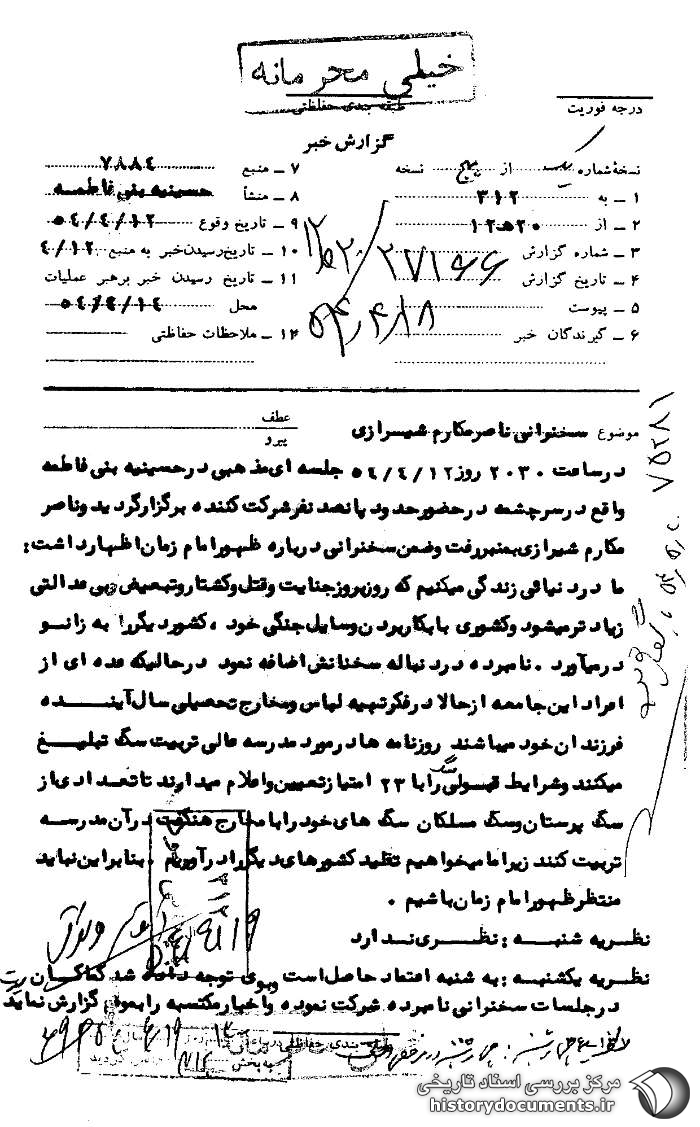 خیلی محرمانه
طبقه بندی حفاظتی
درجه فوریت
گزارش خبر
نسخهٔ شماره یک از پنج نسخه
۷ ــ منبع ۷۸۸۴
۱ ــ به ۳۱۲
۸ ــ منشأ حسینیه بنی فاطمه
۲ ــ از ۲۰هـ۱۲
۹ ــ تاریخ وقوع ۵۴/۴/۱۲
۳ ــ شماره گزارش ۲۷۱۶۶
۱۰ ــ تاریخ رسیدن خبر به منبع ۴/۱۲
۴ ــ تاریخ گزارش ۵۴٫۴٫۱۸
۱۱ ــ تاریخ رسیدن خبر برهبر عملیات
محل ۵۴/۴/۱۴
۵ ــ پیوست
۶ ــ گیرندگان خبر
۱۲ ــ ملاحظات حفاظتی
عطف
پیرو
موضوع سخنرانی ناصر مکارم شیرازی
در ساعت ۲۰۳۰ روز ۵۴/۴/۱۲ جلسه ای مذهبی در حسینیه بنی فاطمه
واقع در سرچشمه در حضور حدود پانصد نفر شرکت کننده برگزار گردید و ناصر
مکارم شیرازی بمنبر رفت و ضمن سخنرانی درباره ظهور امام زمان اظهار داشت :
ما در دنیائی زندگی میکنیم که روز بروز جنایت و قتل و کشتار و تبعیض و بی عدالتی
زیاد تر میشود و کشوری با بکار بردن وسایل جنگی خود ، کشور دیگر را به زانو
در میآورد . نامبرده در دنباله سخنانش اضافه نمود در حالیکه عده ای از
افراد این جامعه از حالا در فکر تهیه لباس و مخارج تحصیلی سال آینده
فرزندان خود میباشند روزنامه ها در مورد مدرسه عالی تربیت سگ تبلیغ
میکنند و شرایط قبولی سگ را با ۲۳ امتیاز تعیین و اعلام میدارند تا تعدادی از
سگ پرستان و سگ مسلکان سگ های خود را با مخارج هنگفت در آن مدرسه
تربیت کنند زیرا ما میخواهیم تقلید کشورهای دیگر را در آوریم . بنابراین نباید
منتظر ظهور امام زمان باشیم .
نظریه شنبه : نظری ندارد
نظریه یکشنبه : به شنبه اعتماد حاصل است و بوی توجه داده شد کماکان
در جلسات سخنرانی نامبرده شرکت نموده و اخبار مکتسبه را بموقع گزارش نماید
طبقه بندی حفاظتی
مرکز بررسی اسناد تاریخی
historydocuments.ir